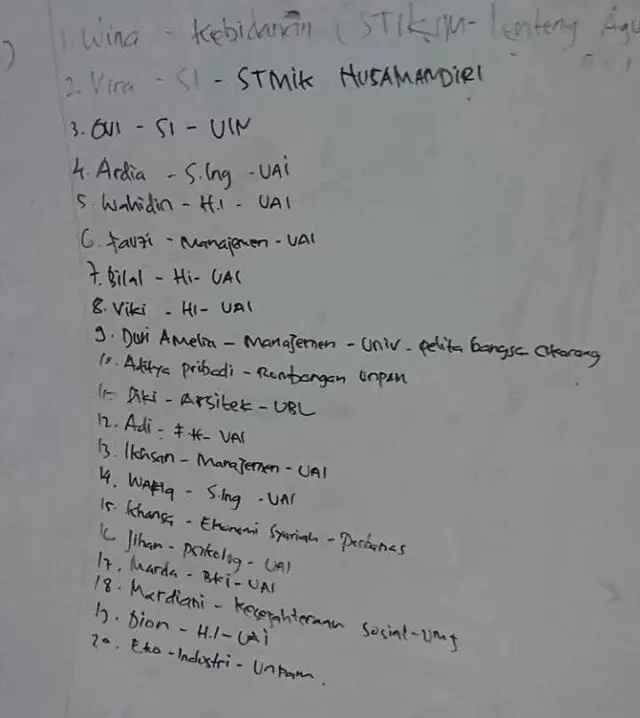 1. Wina - Kebidanan (STIKIM - Lenteng Agu
2. Vira - SI - STMIK NUSAMANDIRI
3. OVI - SI - UIN
4. Ardia - S.Ing - UAI
5. Wahidin - H.I - UAI
6. Fauzi - Manajemen - UAI
7. Bilal - Hi - UAI
8. Viki - HI - UAI
9. Dwi Amelia - Manajemen - Univ. pelita bangsa Cikarang
10. Aditya pribadi - UNPAM
11. Diki - Arsitek - UBL
12. Adi - UAI
13. Ikhsan - Manajemen - UAI
14. Wafiq - S.Ing - UAI
15. Khansa - Ekonomi Syariah - Perbanas
16. Jihan - psikolog - UAI
17. Marda - BKI - UAI
18. Mardiani - Kesejahteraan Sosial - UMJ
19. Dion - H.I - UAI
20. Eko - Industri - Unpam.